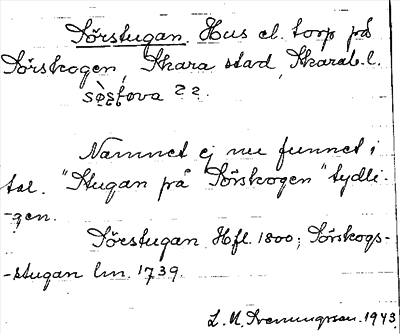 Sörstugan. Hus el. torp på
Sörskogen, Skara stad, Skarab. l.
Namnet ej nu funnet i
tal. "Stugan på Sörskogen" tydli-
-gen.
Sörstugan Hfl. 1800; Sörskogs-
-stugan lm. 1739.
L. M. Svenungsson. 1943